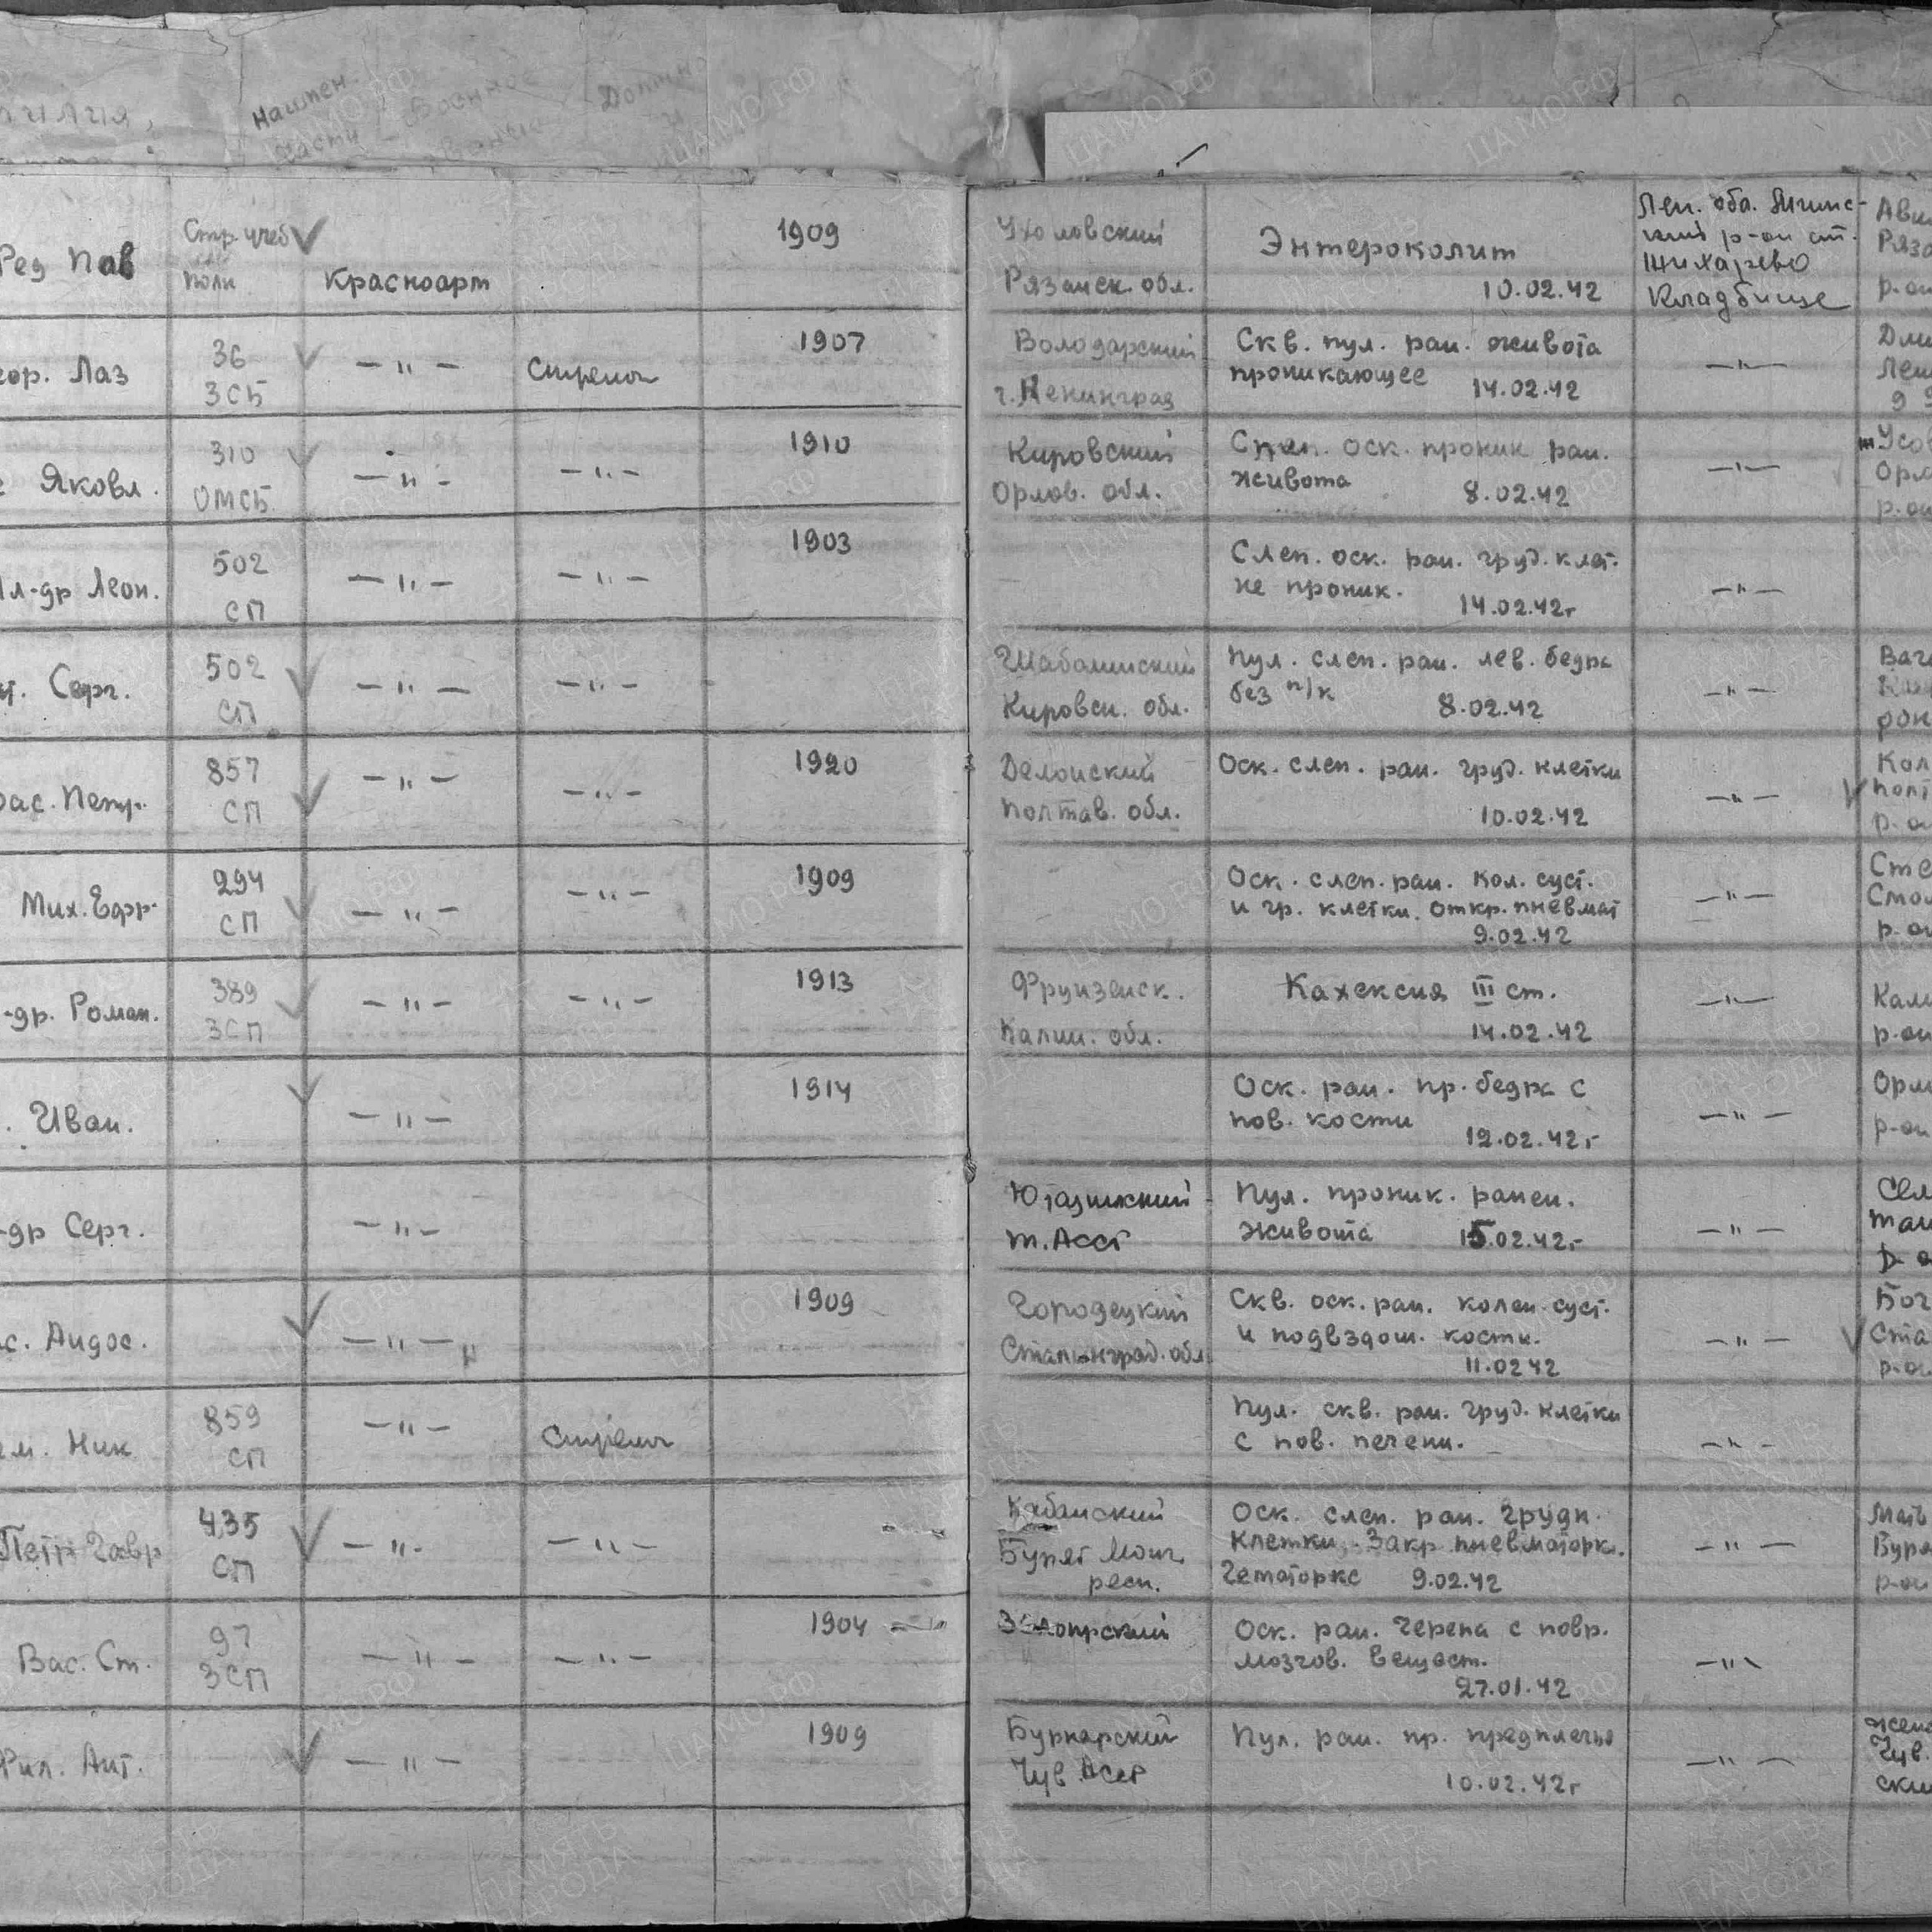 Наимен. Военное
части звание
Ред Пав
Стр. учеб
полк
Красноарм
1909
Ухоловский
Рязанск. обл.
Энтероколит
10.02.42
Лен. обл. Мгинс-
кий р-он ст.
Жихарево
Кладбище
Ряза
р-он
Лаз
36
ЗСБ
— " —
Стрелок
1907
Володарский
г. Ленинград
Скв. пул. ран. живота
проникающее
14.02.42
— " —
Яковл.
310
ОМСБ
— " —
— " —
1910
Кировский
Орлов. обл.
Слеп. оск. проник ран.
живота
8.02.42
— " —
Усов
Орло
р-он
л-др Леон.
502
СП
— " —
— " —
1903
Слеп. оск. ран. груд. клет.
не проник.
14.02.42г
— " —
Серг.
502
СП
— " —
— " —
Шабалинский
Кировск. обл.
Пул. слеп. ран. лев. бедра
без п/к
8.02.42
— " —
Вас. Петр.
857
СП
— " —
— " —
1920
Полтав. обл.
Оск. слеп. ран. груд. клетки
10.02.42
— " —
р-он
Мих. Ефр.
294
СП
— " —
— " —
1909
Оск. слеп. ран. кол. суст.
и гр. клетки. откр. пневмат
9.02.42
— " —
Сте
Смол
р-он
-др. Роман.
389
ЗСП
— " —
— " —
1913
Фрунзенск.
Калин. обл.
Кахексия III ст.
14.02.42
— " —
Кали
р-он
Иван.
— " —
1914
Оск. ран. пр. бедра с
пов. кости
12.02.42г
— " —
Орл
р-он
-др Серг.
— " —
Ютазинский
т. Асст
Пул. проник. ранен.
живота
15.02.42г
— " —
с. Андос.
— " —
1909
Городецкий
Сталинград. обл
Скв. оск. ран. колен. суст.
и подвздош. кости.
11.02 42
— " —
Ста
р-он
Ник
859
СП
— " —
Стрелок
Пул. скв. ран. груд. клетки
с пов. печени.
— " —
Петр Гавр
435
СП
— " —
— " —
Кабанский
Бурят Монг.
респ.
Оск. слеп. ран. грудн.
клетки. Закр пневмоторкс.
Гемоторкс 9.02.42
— " —
Мать
Буря
р-он
Вас. Ст.
97
ЗСП
— " —
— " —
1904
Оск. ран. черепа с повр.
мозгов. вещест.
27.01.42
— " —
Фил. Ант.
— " —
1909
Чув. Асср
Пул. ран. пр. предплечья
10.02.42г
— " —
жена
Чув.
ски